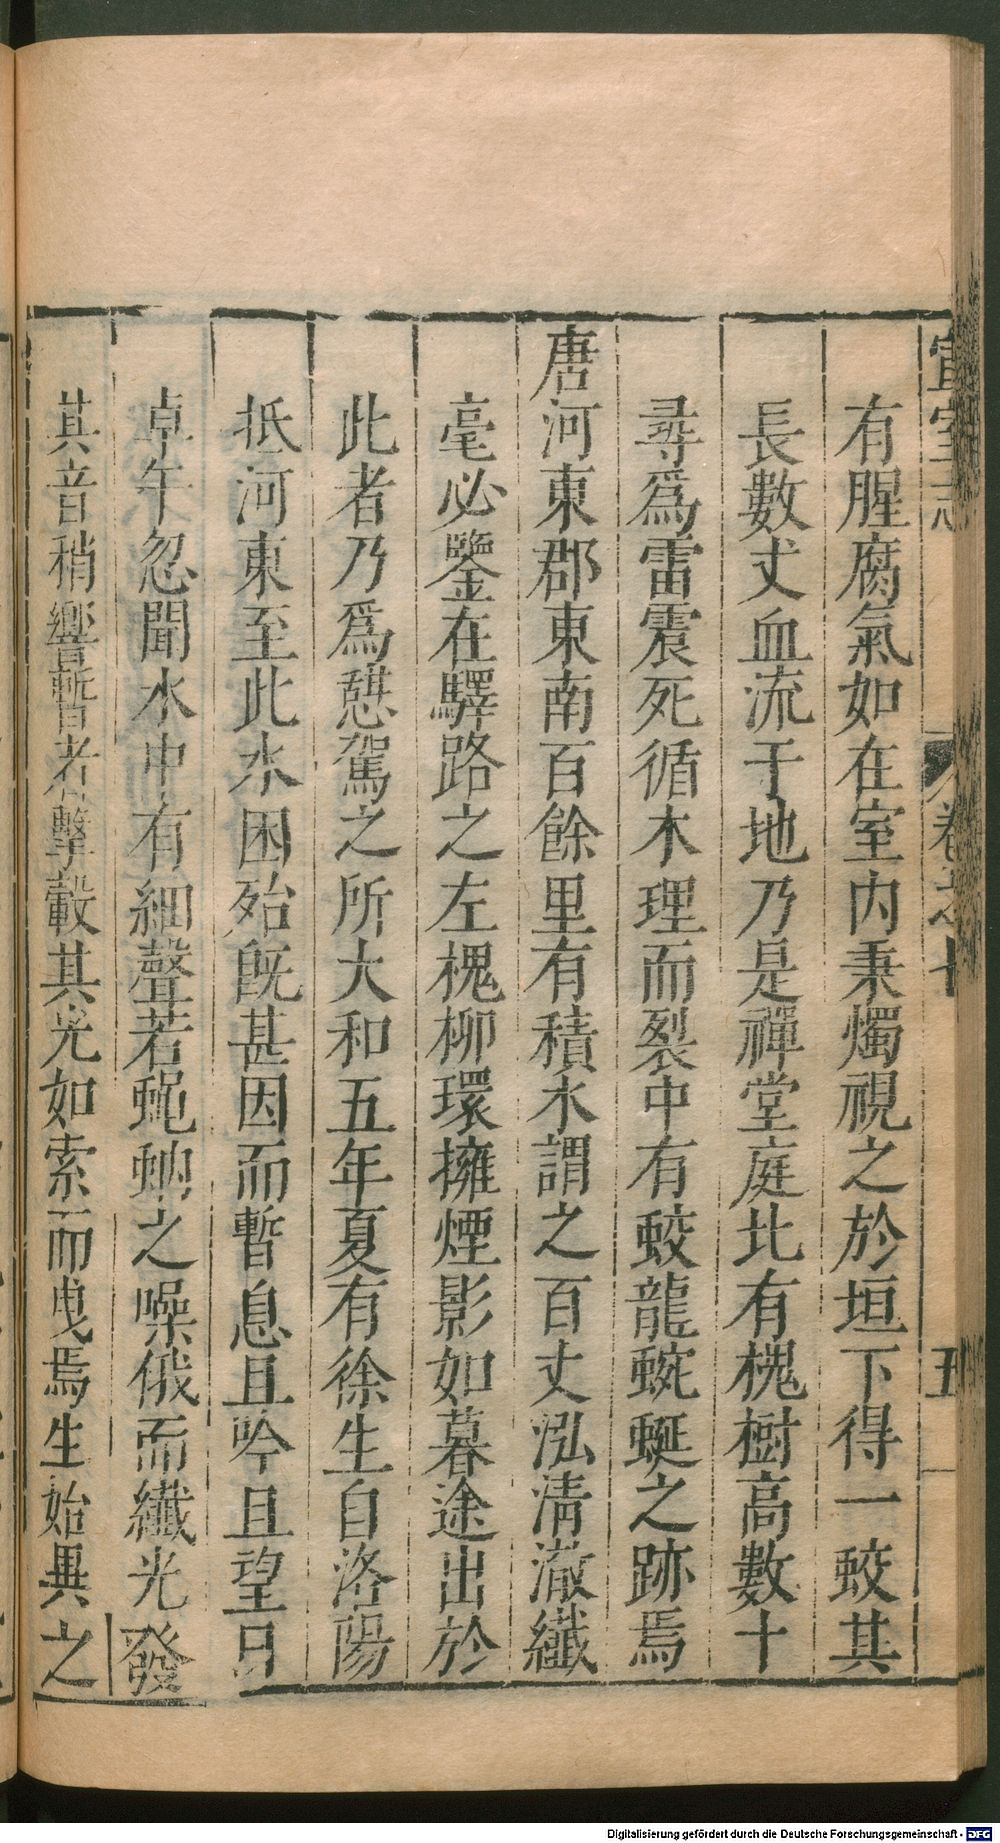 宣室志 卷之七 五
有腥腐氣如在室內秉燭視之於垣下得一蛟其
長數丈血流于地乃是禪堂庭北有槐樹高數十
尋爲雷震死循木理而裂中有蛟龍蜿蜒之跡焉
唐河東郡東南百餘里有積水謂之百丈泓清澈纖
毫必鑒在驛路之左槐柳環擁煙影如暮途出於
此者乃爲憩駕之所大和五年夏有徐生自洛陽
抵河東至此水困殆旣甚因而暫息且吟且望日
卓午忽聞水中有細聲若蝇蚋之噪俄而纖光發
其音稍響暫者擊轂其光如索而曳焉生始異之
Digitalisierung gefördert durch die Deutsche Forschungsgemeinschaft - DFG